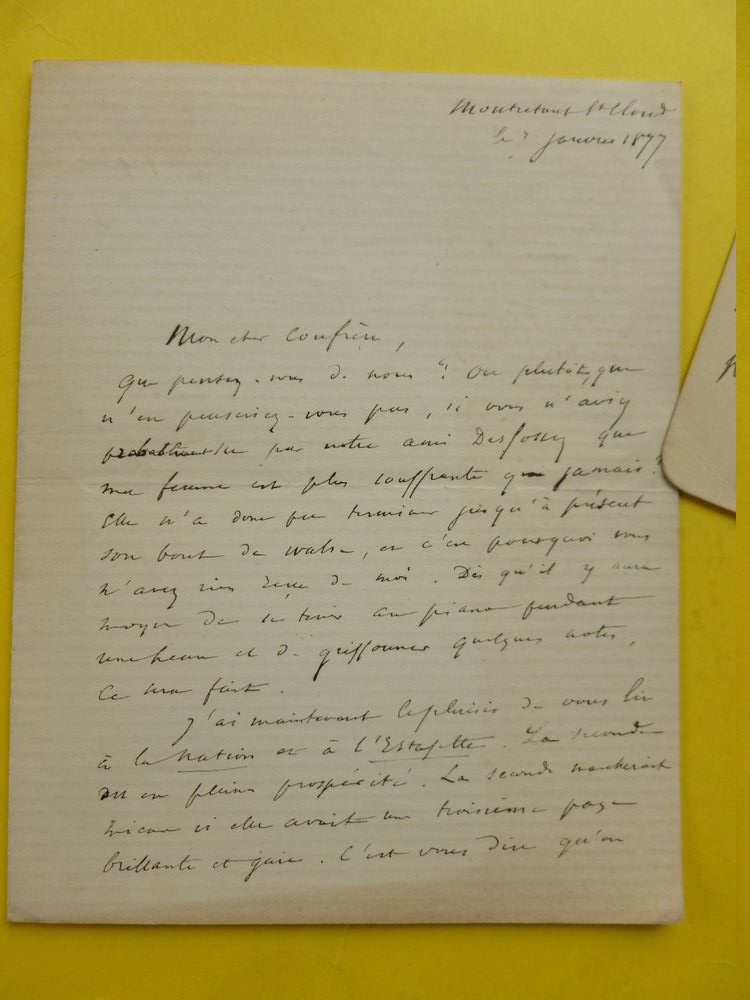 Montretout St Cloud
le 7 janvier 1877
Mon cher confrère,
Que pensez-vous de nous ? Ou plutôt, que
n'en penseriez-vous pas, si vous n'aviez
su par notre ami Desfossez que
ma femme est plus souffrante que jamais ?
Elle n'a donc pu terminer jusqu'à présent
son bout de valse, et c'est pourquoi vous
n'avez rien reçu de moi. Dès qu'il y aura
moyen de se tenir au piano pendant
une heure et de griffonner quelques notes,
ce sera fait.
J'ai maintenant le plaisir de vous lire
à la Nation et à l'Estafette. La seconde
est en pleine prospérité. La seconde marcherait
mieux si elle avait une troisième page
brillante et gaie. C'est vous dire qu'on